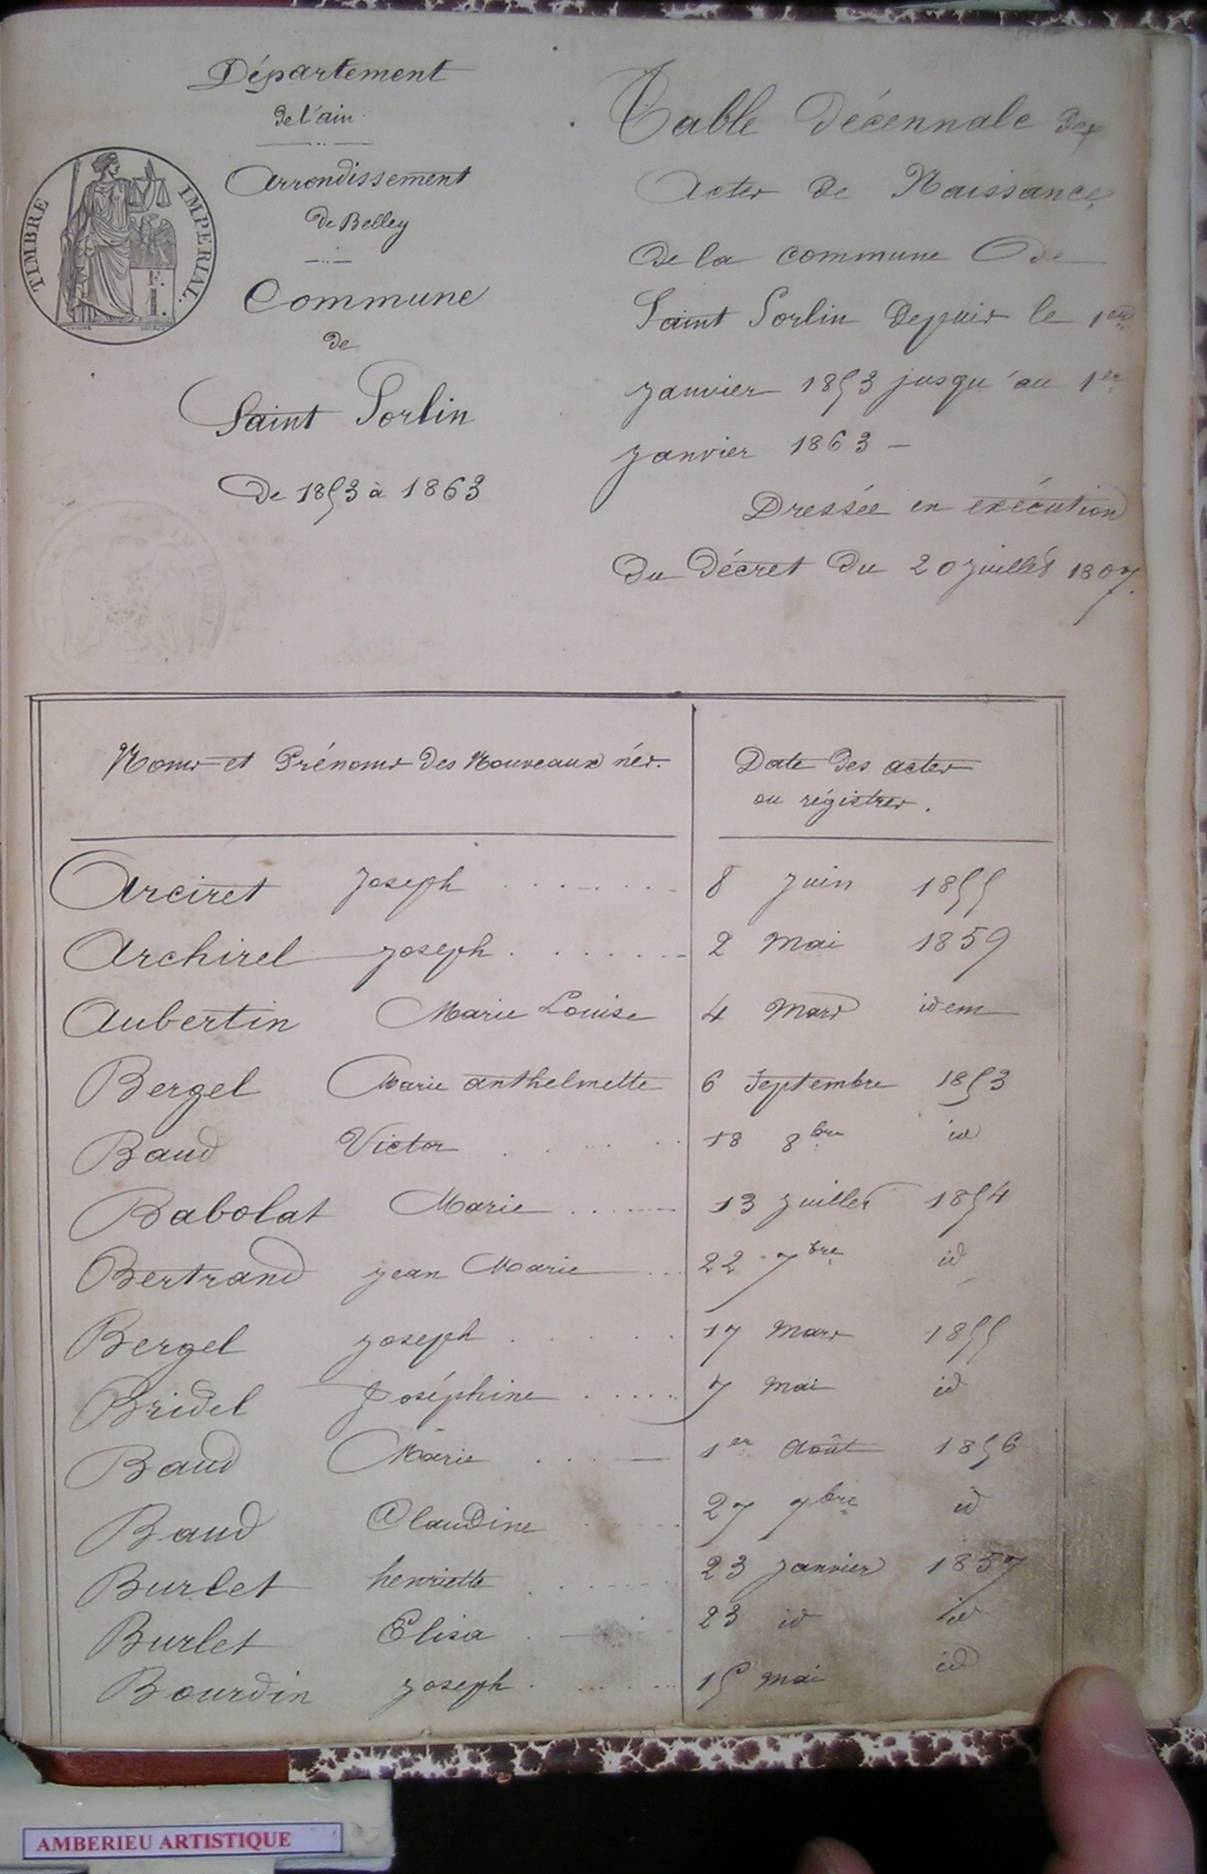 Département
de l'ain
Arrondissement
de Belley
Commune
de
Saint Sorlin
De 1853 à 1863
TIMBRE IMPERIAL.
Table Décennale des
Actes de Naissances
de la commune de
Saint Sorlin Depuis le 1er
janvier 1853 jusqu'au 1er
janvier 1863 —
Dressée en exécution
du Décret du 20 juillet 1807.
Noms et Prénoms des Nouveaux nés. Date des actes
ou régistres.
Arciret Joseph 8 juin 1855
Archirel joseph 2 Mai 1859
Aubertin Marie Louise 4 Mars idem
Bergel Marie anthelmette 6 Septembre 1853
Baud Victor 18 8bre id
Babolat Marie 13 juillet 1854
Bertrand jean Marie 22 7bre id
Bergel joseph 17 Mars 1855
Bridel Joséphine 7 Mai id
Baud Marie 1er Août 1856
Baud Claudine 27 7bre id
Burlet henriette 23 janvier 1857
Burlet Elisa 23 id id
Bourdin joseph 15 Mai id
AMBERIEU ARTISTIQUE